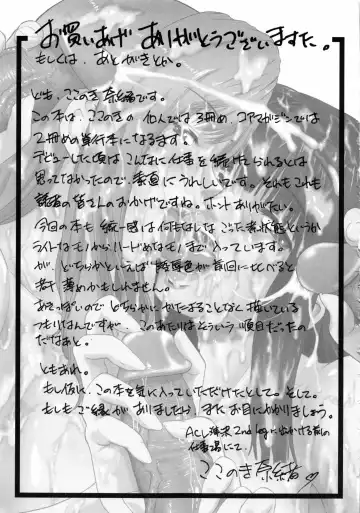 お買いあげ ありがとうございますた。
もしくは、あとがきとか。
ども、ここのき奈緒です。
この本は、ここのきの 個人では 3冊め、コアマガジンでは
2冊めの単行本になるます。
デビューした頃は こんなに仕事を続けてられるとは
思ってなかったので、素直にうれしいです。それもこれも
読者の皆さんのおかげですね。ホントありがたい。
今回の本も 統一感は何もなしな ごった煮状態というか
ライトなモノから ハードめなモノまで 入っています。
が、どちらかといえば 陵辱色が前回に比べると
若干 薄めかもしれません。
あきっぽいので どちらかに かたよることなく 描いている
つもりなんですが、このあたりは そういう 順目だったの
だなぁと。
ともあれ。
もし仮に、この本を気に入っていただけたとして。そして。
もしもご縁が ありましたら、またお目にかかりましょう。
ACL 2nd legに出かける前の
仕事場にて
ここのき奈緒♡